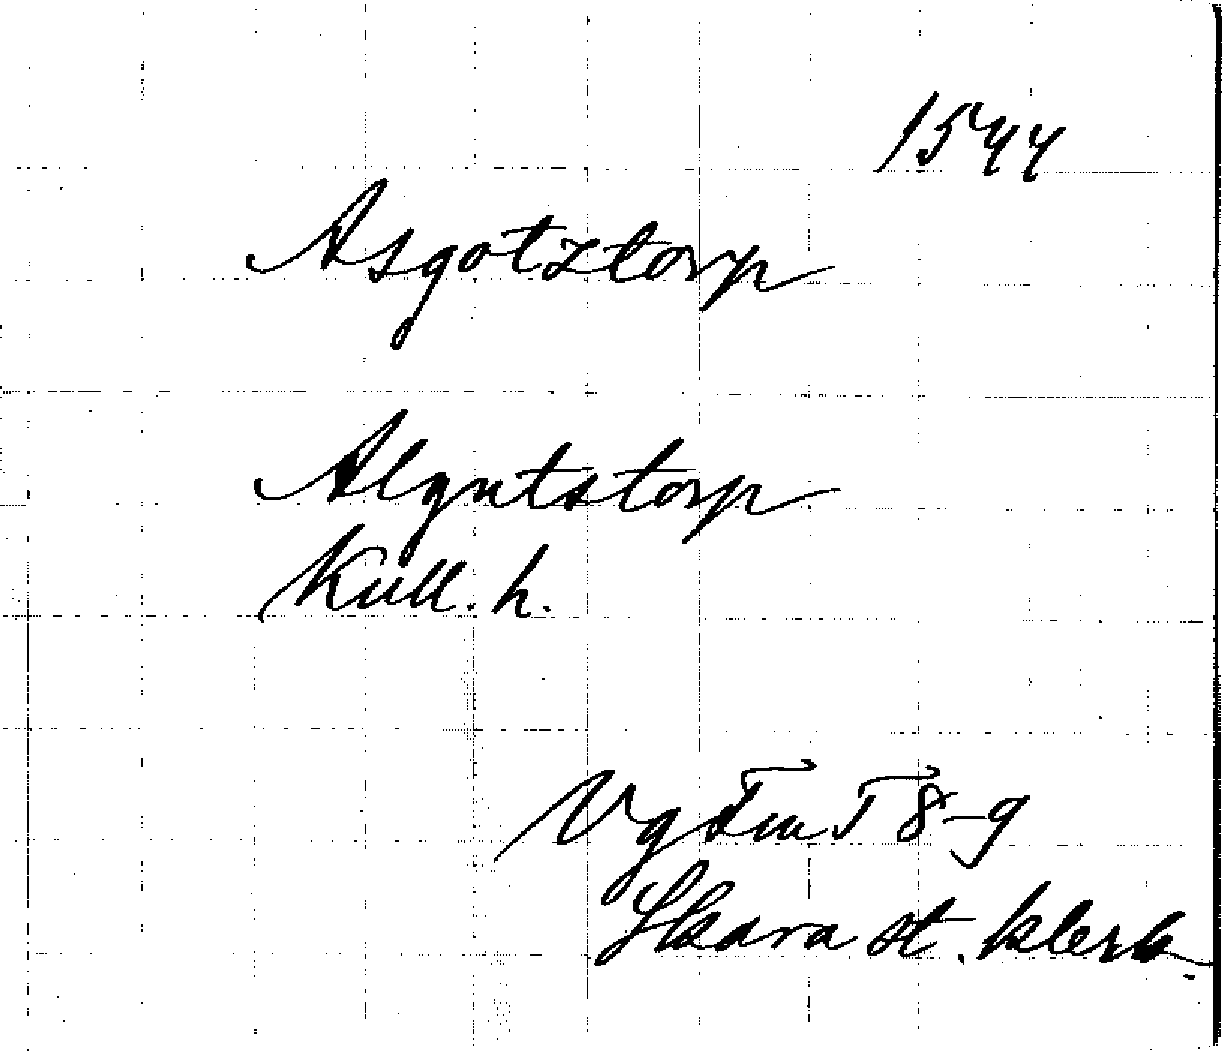 1544
Asgotztorp
Algutstorp
Kull. h.
Vg 8-9
Skara st. klerk.